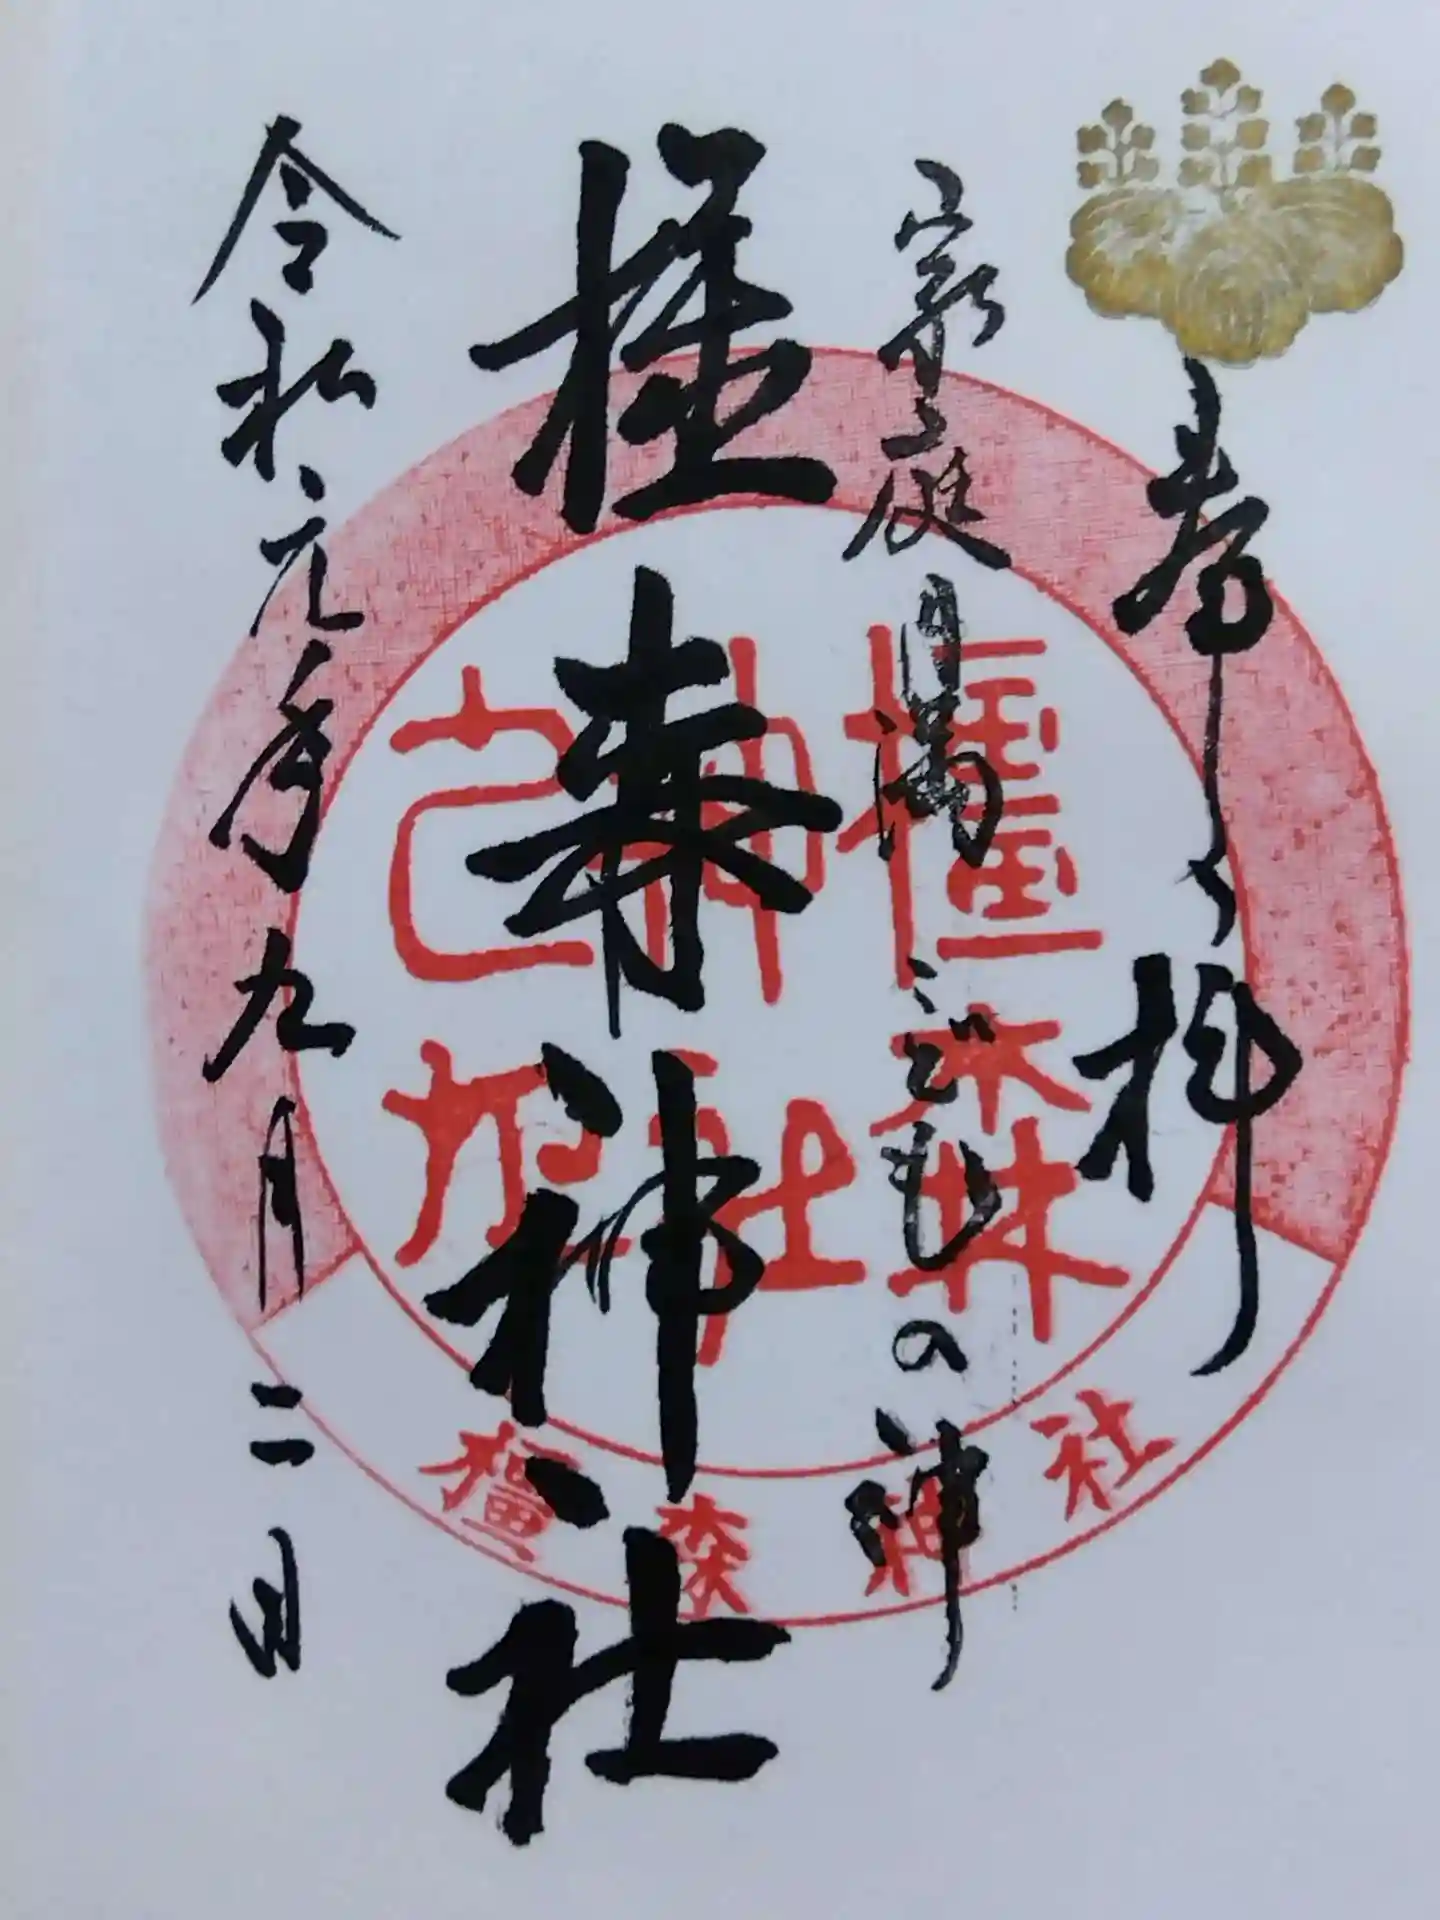 奉拝
家庭円満こどもの神
橿森神社
令和元年九月二日
橿森神社
橿森神社